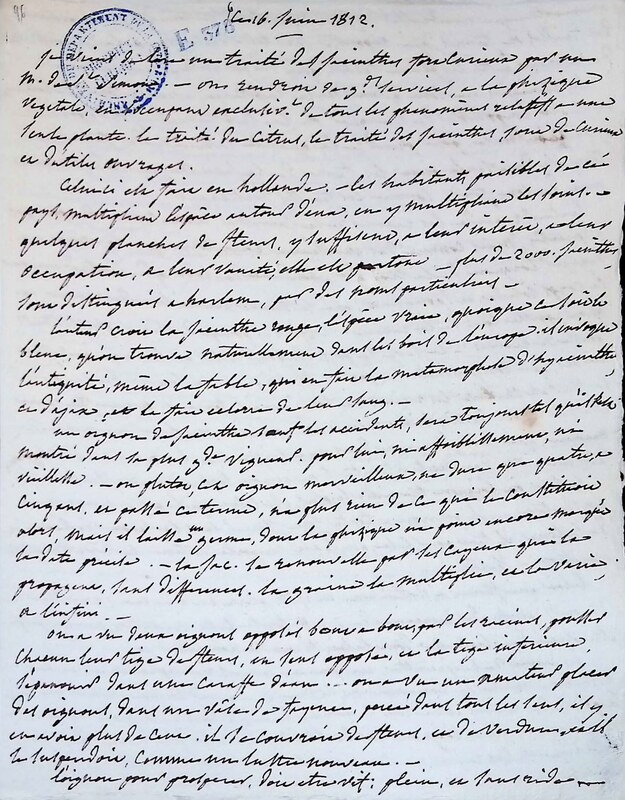 96
Ce 16. juin 1812.
E 378
je viens de lire un traité des jacinthes fort curieux par un
m. de St Simon. — on rendroit de gds services, a la phizique
vegetale, en s'occupant exclusivt de tous les phenomènes relatifs a une
seule plante. le traité du Citrus, le traité des jacinthes, sont de curieux
et d'utiles ouvrages.
Celui ci est fait en hollande. — les habitants paisibles de ce
pays, multiplient l'espèce autour d'eux, en y multipliant les soins. —
quelques planches de fleurs, y suffisent, a leur intérêt, a leur
occupation, a leur vanité, elle est partout — plus de 2000. jacinthes
sont distingués a harlem, par des noms particuliers. —
l'auteur croit la jacinthe rouge, l'espèce vraie, quoique ce soit la
bleue, qu'on trouve naturellement dans les bois de l'europe. il invoque
l'antiquité, même la fable, qui en fait la metamorphose d'hyacinthe
et d'ajax, et la fait colorée de leur sang. —
un oignon de jacinthe sauf les accidents, sera toujours tel qu'il s'est
montré dans sa plus gde vigueur. pour lui, ni affoiblissement, ni
vieillesse. — ou plutot, cet oignon merveilleux, ne dure que quatre, a
cinq ans, et passé ce terme, n'a plus rien de ce qui le constituoit
alors, mais il laisse un germe, dont la phizique n'a point encore marqué
la date précise. — la jac. se renouvelle par ses cayeux qui la
propagent, sans differences. la graine la multiplie, et la varie,
a l'infini. —
on a vu deux oignons opposés bout a bout, par les racines, pousser
chacun leur tige de fleurs, en sens opposé, et la tige inferieure,
s'épanouir dans une caraffe d'eau... on a vu un amateur placer
des oignons, dans un vase de fayence, percé dans tous les sens, il y
en avoit plus de cent. il se couvroit de fleurs, et de verdure, et il
le suspendoit, comme un lustre nouveau. —
l'oignon pour prosperer, doit etre vif, plein, et sans rides —